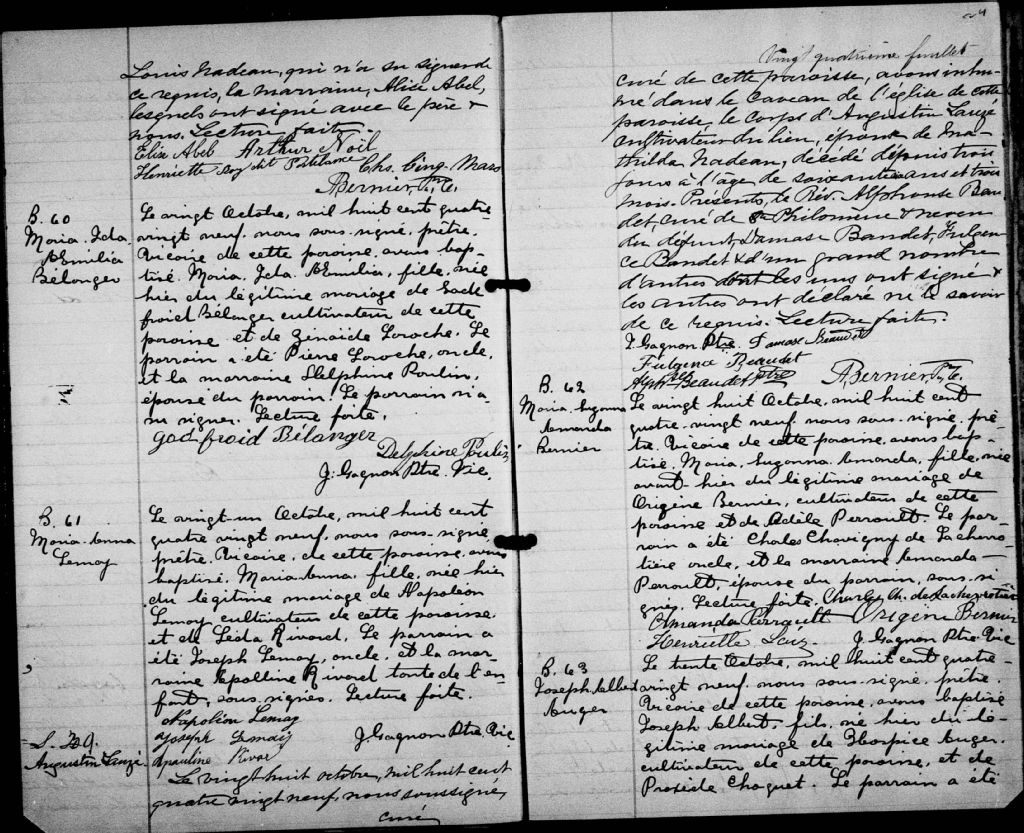 Louis Nadeau, qui n'a su signer de
ce requis, la marraine, Alice Abel,
lesquels ont signé avec le père &
nous. Lecture faite.
Elise Abel Arthur Noël
Henriette Roy dit Chs. Cing-Mars
A Bernier, Ptre, C.
B. 60
Maria. Ida.
AEmilia
Bélanger
Le vingt Octobre, mil huit cent quatre
vingt neuf. nous sous-signé, prêtre,
Vicaire de cette paroisse, avons bap-
tisé, Maria, Ida. AEmilia, fille, née
hier du légitime mariage de Gode
froid Bélanger cultivateur de cette
paroisse et de Zénaïde Laroche. Le
parrain a été Pierre Laroche, oncle,
et la marraine Delphine Poulin,
épouse du parrain. Le parrain n'a
su signer. Lecture faite.
god froid Bélanger
Delphine Poulin
J. Gagnon Ptre. Vic.
B. 61
Maria-Anna
Lemay
Le vingt-un Octobre, mil huit cent
quatre vingt neuf, nous sous-signé,
prêtre. Vicaire, de cette paroisse, avons
baptisé, Maria-Anna, fille, née hier
du légitime mariage de Napoléon
Lemay cultivateur de cette paroisse
et de Léda Rivard. Le parrain a
été Joseph Lemay, oncle, et la mar-
raine Apolline Rivard tante de l'en-
fant, sous-signés. Lecture faite.
Napoléon Lemay
Joseph Lemay J. Gagnon Ptre Vic
Apauline Rivar
S. 39.
Augustin Lauzé
Le vingt huit octobre, mil huit cent
quatre vingt neuf, nous soussigné,
curé
24
Vingt quatrième feuillet
curé de cette paroisse, avons inhu-
mé dans le caveau de l'église de cette
paroisse, le corps d'Augustin Lauzé
cultivateur du lieu, époux de Ma-
thilda Nadeau, décédé depuis trois
jours à l'âge de soixante ans et trois
mois. Présents, le Rév. Alphonse Beau
det, curé de Ste Philomène & neveu
du défunt, Damase Baudet, Fulgen
ce Baudet & d'un grand nombre
d'autres dont les uns ont signé &
les autres ont déclaré ne le savoir
de ce requis. Lecture faite.
J. Gagnon Ptre Damase Beaudet
Fulgence Beaudet
Alph. Beaudet ptre A Bernier, Ptre, C.
B. 62
Maria. Suzanna
Amanda
Bernier
Le vingt huit Octobre, mil huit cent
quatre-vingt neuf nous sous-signé, prê-
tre. Vicaire de cette paroisse, avons bap-
tisé, Maria, Suzanna. Amanda, fille, née
avant-hier du légitime mariage de
Origène Bernier, cultivateur de cette
paroisse et de Adèle Perrault. Le par-
rain a été Charles Chavigny de Lachevro
tière oncle, et la marraine Amanda
Perault, épouse du parrain, sous-si
gnés. Lecture faite. Charles Ch. de Lachevrotière
Amanda Perrault Origène Bernier
Henriette J. Gagnon Ptre Vic
B. 63
Joseph Albert
Auger
Le trente Octobre, mil huit cent quatre-
vingt neuf. nous sous-signé, prêtre.
Vicaire de cette paroisse, avons baptisé
Joseph Albert, fils, né hier du lé-
gitime mariage de Hospice Auger.
cultivateur de cette paroisse, et de
Proxède Choquet. Le parrain a été